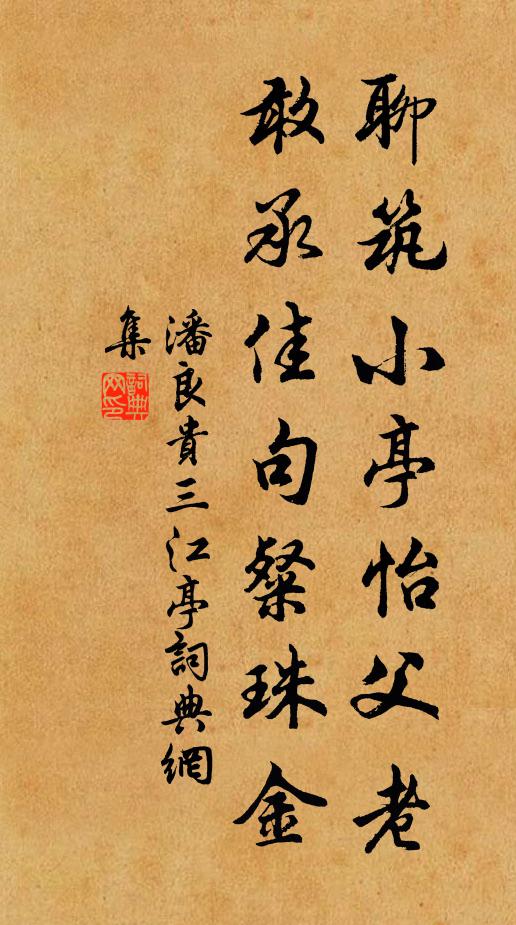 聊筑小亭怡父老
敢承佳句粲珠金
潘良貴三江亭詞典網
集
詞典网印